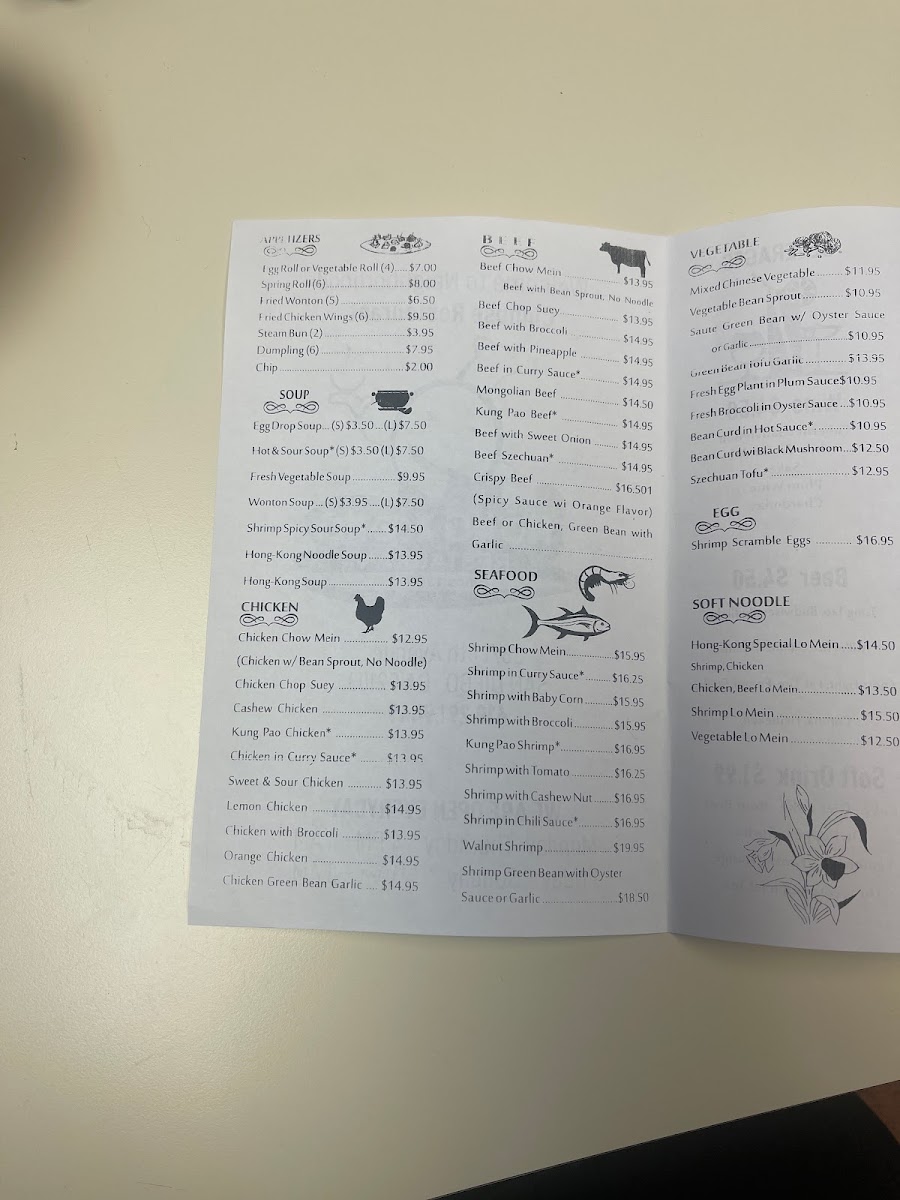 APPETIZERS
Egg Roll or Vegetable Roll (4)....$7.00
Spring Roll (6)..........$8.00
Fried Wonton (5)..........$6.50
Fried Chicken Wings (6)..........$9.50
Steam Bun (2)..........$3.95
Dumpling (6)..........$7.95
Chip..........$2.00
SOUP
Egg Drop Soup...(S) $3.50...(L) $7.50
Hot & Sour Soup* (S) $3.50 (L) $7.50
Fresh Vegetable Soup..........$9.95
Wonton Soup...(S) $3.95....(L) $7.50
Shrimp Spicy Sour Soup*......$14.50
Hong-Kong Noodle Soup......$13.95
Hong-Kong Soup..........$13.95
CHICKEN
Chicken Chow Mein .......... $12.95
(Chicken w/ Bean Sprout, No Noodle)
Chicken Chop Suey .......... $13.95
Cashew Chicken .......... $13.95
Kung Pao Chicken* .......... $13.95
Chicken in Curry Sauce* ...... $13.95
Sweet & Sour Chicken .......... $13.95
Lemon Chicken .......... $14.95
Chicken with Broccoli .......... $13.95
Orange Chicken .......... $14.95
Chicken Green Bean Garlic .... $14.95
BEEF
Beef Chow Mein .......... $13.95
Beef with Bean Sprout, No Noodle
Beef Chop Suey .......... $13.95
Beef with Broccoli .......... $14.95
Beef with Pineapple .......... $14.95
Beef in Curry Sauce* .......... $14.95
Mongolian Beef .......... $14.50
Kung Pao Beef* .......... $14.95
Beef with Sweet Onion .......... $14.95
Beef Szechuan* .......... $14.95
Crispy Beef .......... $16.501
(Spicy Sauce wi Orange Flavor)
Beef or Chicken, Green Bean with
Garlic ..........
SEAFOOD
Shrimp Chow Mein..........$15.95
Shrimp in Curry Sauce*..........$16.25
Shrimp with Baby Corn..........$15.95
Shrimp with Broccoli..........$15.95
Kung Pao Shrimp*..........$16.95
Shrimp with Tomato..........$16.25
Shrimp with Cashew Nut......$16.95
Shrimp in Chili Sauce*..........$16.95
Walnut Shrimp..........$19.95
Shrimp Green Bean with Oyster
Sauce or Garlic..........$18.50
VEGETABLE
Mixed Chinese Vegetable ........$11.95
Vegetable Bean Sprout ..........$10.95
Saute Green Bean w/ Oyster Sauce
or Garlic..........$10.95
Green Bean Tofu Garlic ..........$13.95
Fresh Egg Plant in Plum Sauce$10.95
Fresh Broccoli in Oyster Sauce ...$10.95
Bean Curd in Hot Sauce*..........$10.95
Bean Curd wi Black Mushroom...$12.50
Szechuan Tofu*..........$12.95
EGG
Shrimp Scramble Eggs .......... $16.95
SOFT NOODLE
Hong-Kong Special Lo Mein.....$14.50
Shrimp, Chicken
Chicken, Beef Lo Mein..........$13.50
Shrimp Lo Mein ..........$15.50
Vegetable Lo Mein..........$12.50